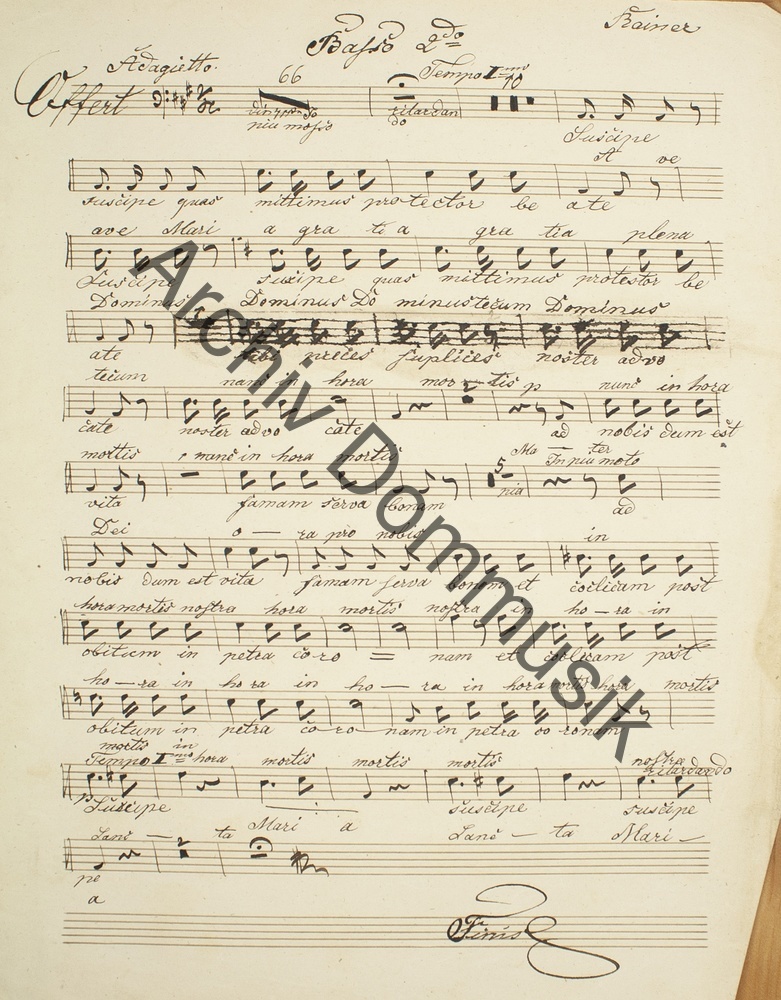 Basso 2do
Rainer
Adagietto.
66
Tempo Imo
10
Offert
piu mosso
ritardan
do
Suscipe
A ve
suscipe quas mittimus protector be ate
ave Mari a gra ti a gra tia plena
Suscipe suscipe quas mittimus protector be
Dominus Dominus Do minus tecum Dominus
ate tibi preces suplices noster advo
tecum nunc in hora mor tis nunc in hora
cate noster advo cate ad nobis dum est
mortis nunc in hora mortis
5
Ma — ter
In piu moto
vita famam serva bonam nia ad
Dei o — ra pro nobis in
nobis dum est vita famam serva bonam et coelicam post
hora mortis nostra hora mortis nostra in ho — ra in
obitum in petra co-ro = nam et coelicam post
ho — ra in ho ra in ho — ra in hora mortis hora mortis
obitum in petra co-ro nam in petra co ronam
mortis in
Tempo Imo hora mortis mortis mortis nostra
ritardando
p Suscipe suscipe suscipe
Sanc — ta Mari a Sanc — ta Mari —
2
pe
a
Finis
Archiv Dommusik